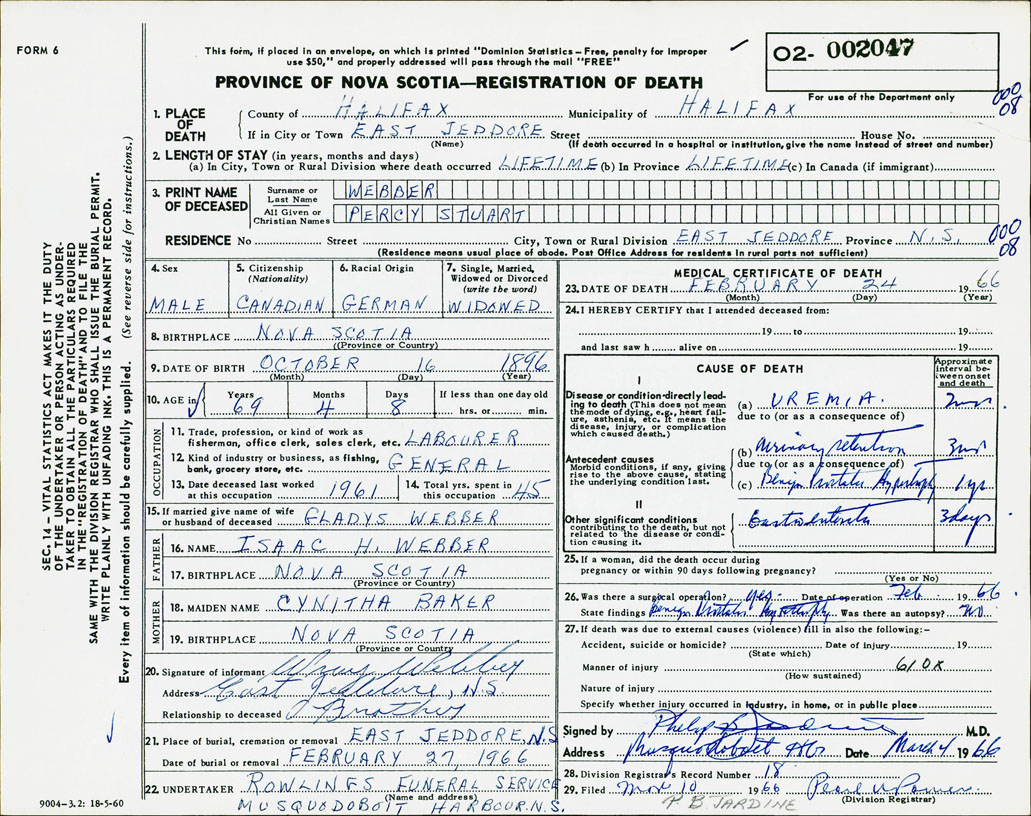 FORM 6
This form, if placed in an envelope, on which is printed "Dominion Statistics – Free, penalty for improper
use $50," and properly addressed will pass through the mail "FREE"
O2- 002047
For use of the Department only
PROVINCE OF NOVA SCOTIA—REGISTRATION OF DEATH
000
08
1. PLACE OF DEATH
County of HALIFAX Municipality of HALIFAX
If in City or Town EAST JEDDORE Street House No.
(Name) (If death occurred in a hospital or institution, give the name instead of street and number)
2. LENGTH OF STAY (in years, months and days)
(a) In City, Town or Rural Division where death occurred LIFETIME (b) In Province LIFETIME (c) In Canada (if immigrant)
3. PRINT NAME OF DECEASED
Surname or Last Name WEBBER
All Given or Christian Names PERCY STUART
RESIDENCE No Street City, Town or Rural Division EAST JEDDORE Province N.S.
000
08
(Residence means usual place of abode. Post Office Address for residents in rural parts not sufficient)
4. Sex
MALE
5. Citizenship
(Nationality)
CANADIAN
6. Racial Origin
GERMAN
7. Single, Married,
Widowed or Divorced
(write the word)
WIDOWED
8. BIRTHPLACE NOVA SCOTIA
((Province or Country)
9. DATE OF BIRTH OCTOBER 16 1896
(Month) (Day) (Year)
10. AGE in
Years Months Days If less than one day old
69 4 8 hrs. or min.
OCCUPATION
11. Trade, profession, or kind of work as
fisherman, office clerk, sales clerk, etc. LABOURER
12. Kind of industry or business, as fishing,
bank, grocery store, etc. GENERAL
13. Date deceased last worked
at this occupation 1961
14. Total yrs. spent in
this occupation 45
15. If married give name of wife
or husband of deceased GLADYS WEBBER
FATHER
16. NAME ISAAC H. WEBBER
17. BIRTHPLACE NOVA SCOTIA
(Province or Country)
MOTHER
18. MAIDEN NAME CYNITHA BAKER
19. BIRTHPLACE NOVA SCOTIA
(Province or Country)
20. Signature of informant Webber
Address East Jeddore, N.S.
Relationship to deceased Brother
21. Place of burial, cremation or removal EAST JEDDORE, N.S
Date of burial or removal FEBRUARY 27, 1966
22. UNDERTAKER ROWLINGS FUNERAL SERVICE
(Name and address)
MUSQUODOBOIT HARBOUR, N.S.
9004–3.2: 18-5-60
MEDICAL CERTIFICATE OF DEATH
23. DATE OF DEATH FEBRUARY 24 1966
(Month) (Day) (Year)
24. I HEREBY CERTIFY that I attended deceased from:
19 to 19
and last saw h alive on 19
CAUSE OF DEATH
Approximate
interval be-
tween onset
and death
I
Disease or condition directly lead-
ing to death (This does not mean
the mode of dying, e.g., heart fail-
ure, asthenia, etc. It means the
disease, injury, or complication
which caused death.)
(a) UREMIA.
due to (or as a consequence of)
(b) Urinary retention
Antecedent causes
Morbid conditions, if any, giving
rise to the above cause, stating
the underlying condition last.
due to (or as a consequence of)
(c) Benign Prostatic Hypertrophy 1 yr
II
Other significant conditions
contributing to the death, but not
related to the disease or condi-
tion causing it.
3 days
25. If a woman, did the death occur during
pregnancy or within 90 days following pregnancy?
(Yes or No)
26. Was there a surgical operation? yes Date of operation Feb 1966
State findings Benign Prostatic Hypertrophy Was there an autopsy? No
27. If death was due to external causes (violence) fill in also the following:–
Accident, suicide or homicide? Date of injury 19
(State which)
Manner of injury 610X
(How sustained)
Nature of injury
Specify whether injury occurred in industry, in home, or in public place
Signed by Philip B Jardine M.D.
Address Musquodoboit Hbr Date March 4 1966
28. Division Registrar's Record Number 18
29. Filed Mar 10 1966 Pearl
(Division Registrar)
P B JARDINE
SEC. 14 – VITAL STATISTICS ACT MAKES IT THE DUTY
OF THE UNDERTAKER OR PERSON ACTING AS UNDER-
TAKER TO OBTAIN ALL THE PARTICULARS REQUIRED
IN THE "REGISTRATION OF DEATH" AND TO FILE THE
SAME WITH THE DIVISION REGISTRAR WHO SHALL ISSUE THE BURIAL PERMIT.
WRITE PLAINLY WITH UNFADING INK. THIS IS A PERMANENT RECORD.
Every item of information should be carefully supplied. (See reverse side for instructions.)